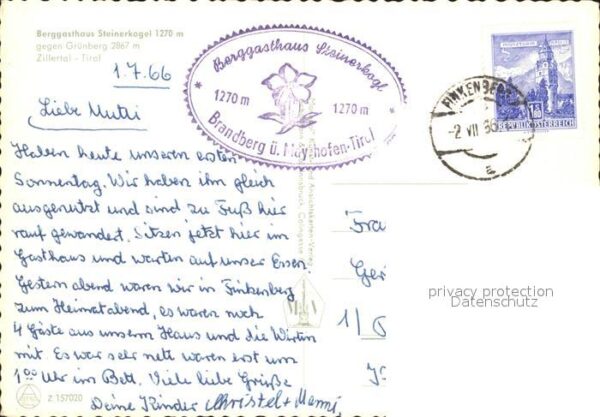 Berggasthaus Steinerkogel 1270 m
gegen Grünberg 2867 m
Zillertal - Tirol
1.7.66
Liebe Mutti
Haben heute unseren ersten
Sonnentag. Wir haben ihn gleich
ausgenutzt und sind zu Fuß hier
rauf gewandert. Sitzen jetzt hier im
Gasthaus und warten auf unser Essen.
Gestern abend waren wir in Finkenberg
zum Heimatabend, es waren noch
4 Gäste aus unserm Haus und die Wirtin
mit. Es war sehr nett waren erst um
1⁰⁰ Uhr im Bett. Viele liebe Grüße
Deine Kinder Christel + Manni
Z 157020
Berggasthaus Steinerkogl
1270 m
1270 m
Brandberg ü. Mayrhofen-Tirol
FINKENBERG
-2 VII 66
a
REPUBLIK ÖSTERREICH
Frau
Ger
1/
privacy protection
Datenschutz